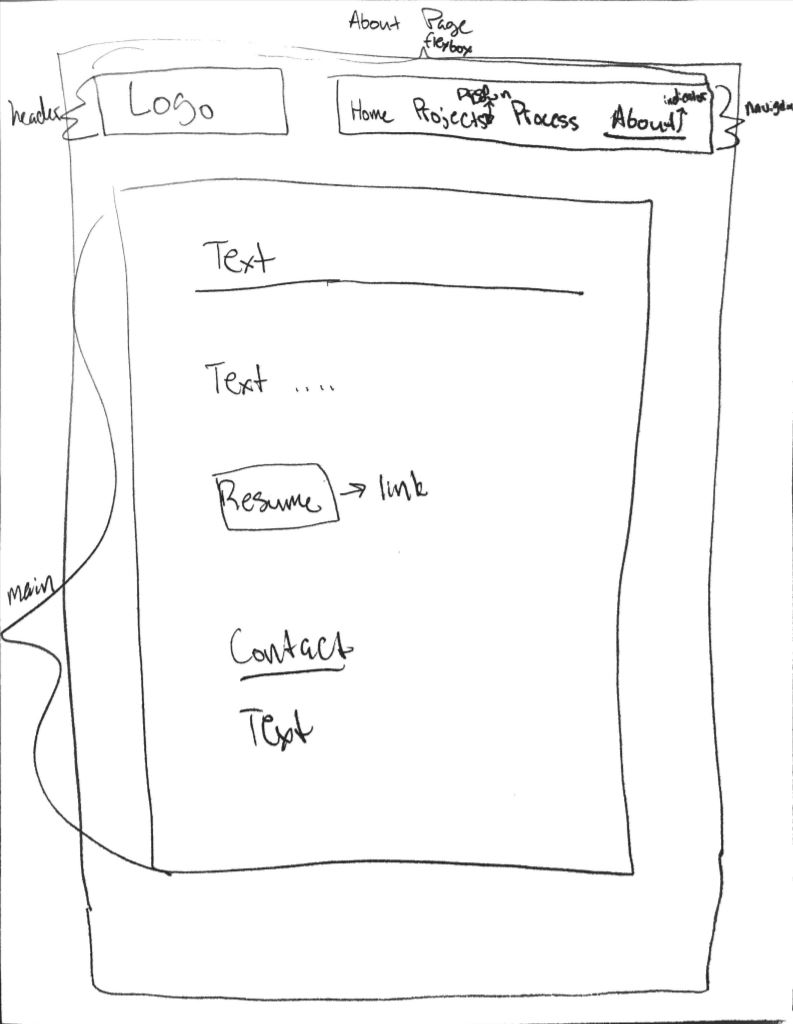 About Page
flexbox
header
Logo
Home Projects Process About
indicator
Text
Text ....
Resume → link
main
Contact
Text